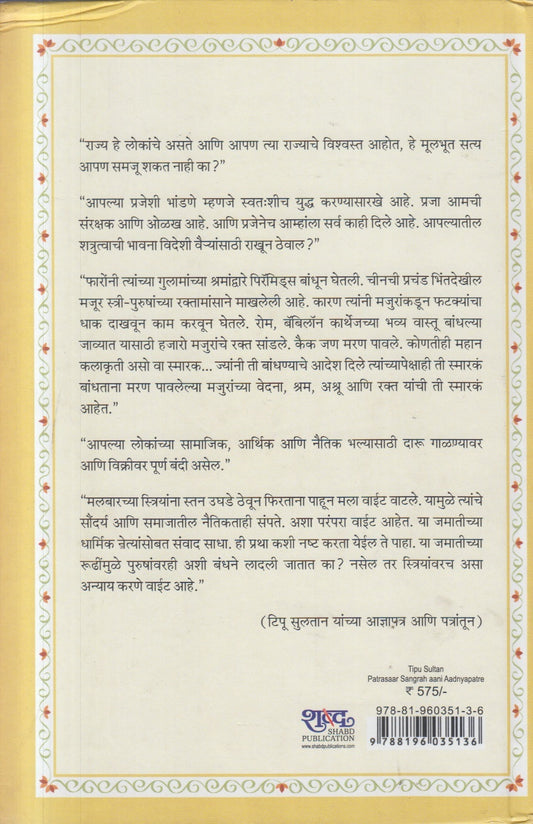 “राज्य हे लोकांचे असते आणि आपण त्या राज्याचे विश्वस्त आहोत, हे मूलभूत सत्य
आपण समजू शकत नाही का?”
“आपल्या प्रजेशी भांडणे म्हणजे स्वतःशीच युद्ध करण्यासारखे आहे. प्रजा आमची
संरक्षक आणि ओळख आहे. आणि प्रजेनेच आम्हांला सर्व काही दिले आहे. आपल्यातील
शत्रुत्वाची भावना विदेशी वैऱ्यांसाठी राखून ठेवाल?”
“फारोंनी त्यांच्या गुलामांच्या श्रमांद्वारे पिरॅमिड्स बांधून घेतली. चीनची प्रचंड भिंतदेखील
मजूर स्त्री-पुरुषांच्या रक्तामांसाने माखलेली आहे. कारण त्यांनी मजुरांकडून फटक्यांचा
धाक दाखवून काम करवून घेतले. रोम, बॅबिलॉन कार्थेजच्या भव्य वास्तू बांधल्या
जाव्यात यासाठी हजारो मजुरांचे रक्त सांडले. कैक जण मरण पावले. कोणतीही महान
कलाकृती असो वा स्मारक... ज्यांनी ती बांधण्याचे आदेश दिले त्यांच्यापेक्षाही ती स्मारकं
बांधताना मरण पावलेल्या मजुरांच्या वेदना, श्रम, अश्रू आणि रक्त यांची ती स्मारकं
आहेत.”
“आपल्या लोकांच्या सामाजिक, आर्थिक आणि नैतिक भल्यासाठी दारू गाळण्यावर
आणि विक्रीवर पूर्ण बंदी असेल.”
“मलबारच्या स्त्रियांना स्तन उघडे ठेवून फिरताना पाहून मला वाईट वाटले. यामुळे त्यांचे
सौंदर्य आणि समाजातील नैतिकताही संपते. अशा परंपरा वाईट आहेत. या जमातीच्या
धार्मिक नेत्यांसोबत संवाद साधा. ही प्रथा कशी नष्ट करता येईल ते पाहा. या जमातीच्या
रूढींमुळे पुरुषांवरही अशी बंधने लादली जातात का? नसेल तर स्त्रियांवरच असा
अन्याय करणे वाईट आहे.”
(टिपू सुलतान यांच्या आज्ञापत्र आणि पत्रांतून)
Tipu Sultan
Patrasaar Sangrah aani Aadnyapatre
₹ 575/-
978-81-960351-3-6
शब्द
SHABD
PUBLICATION
www.shabdpublications.com
9 788196 035136